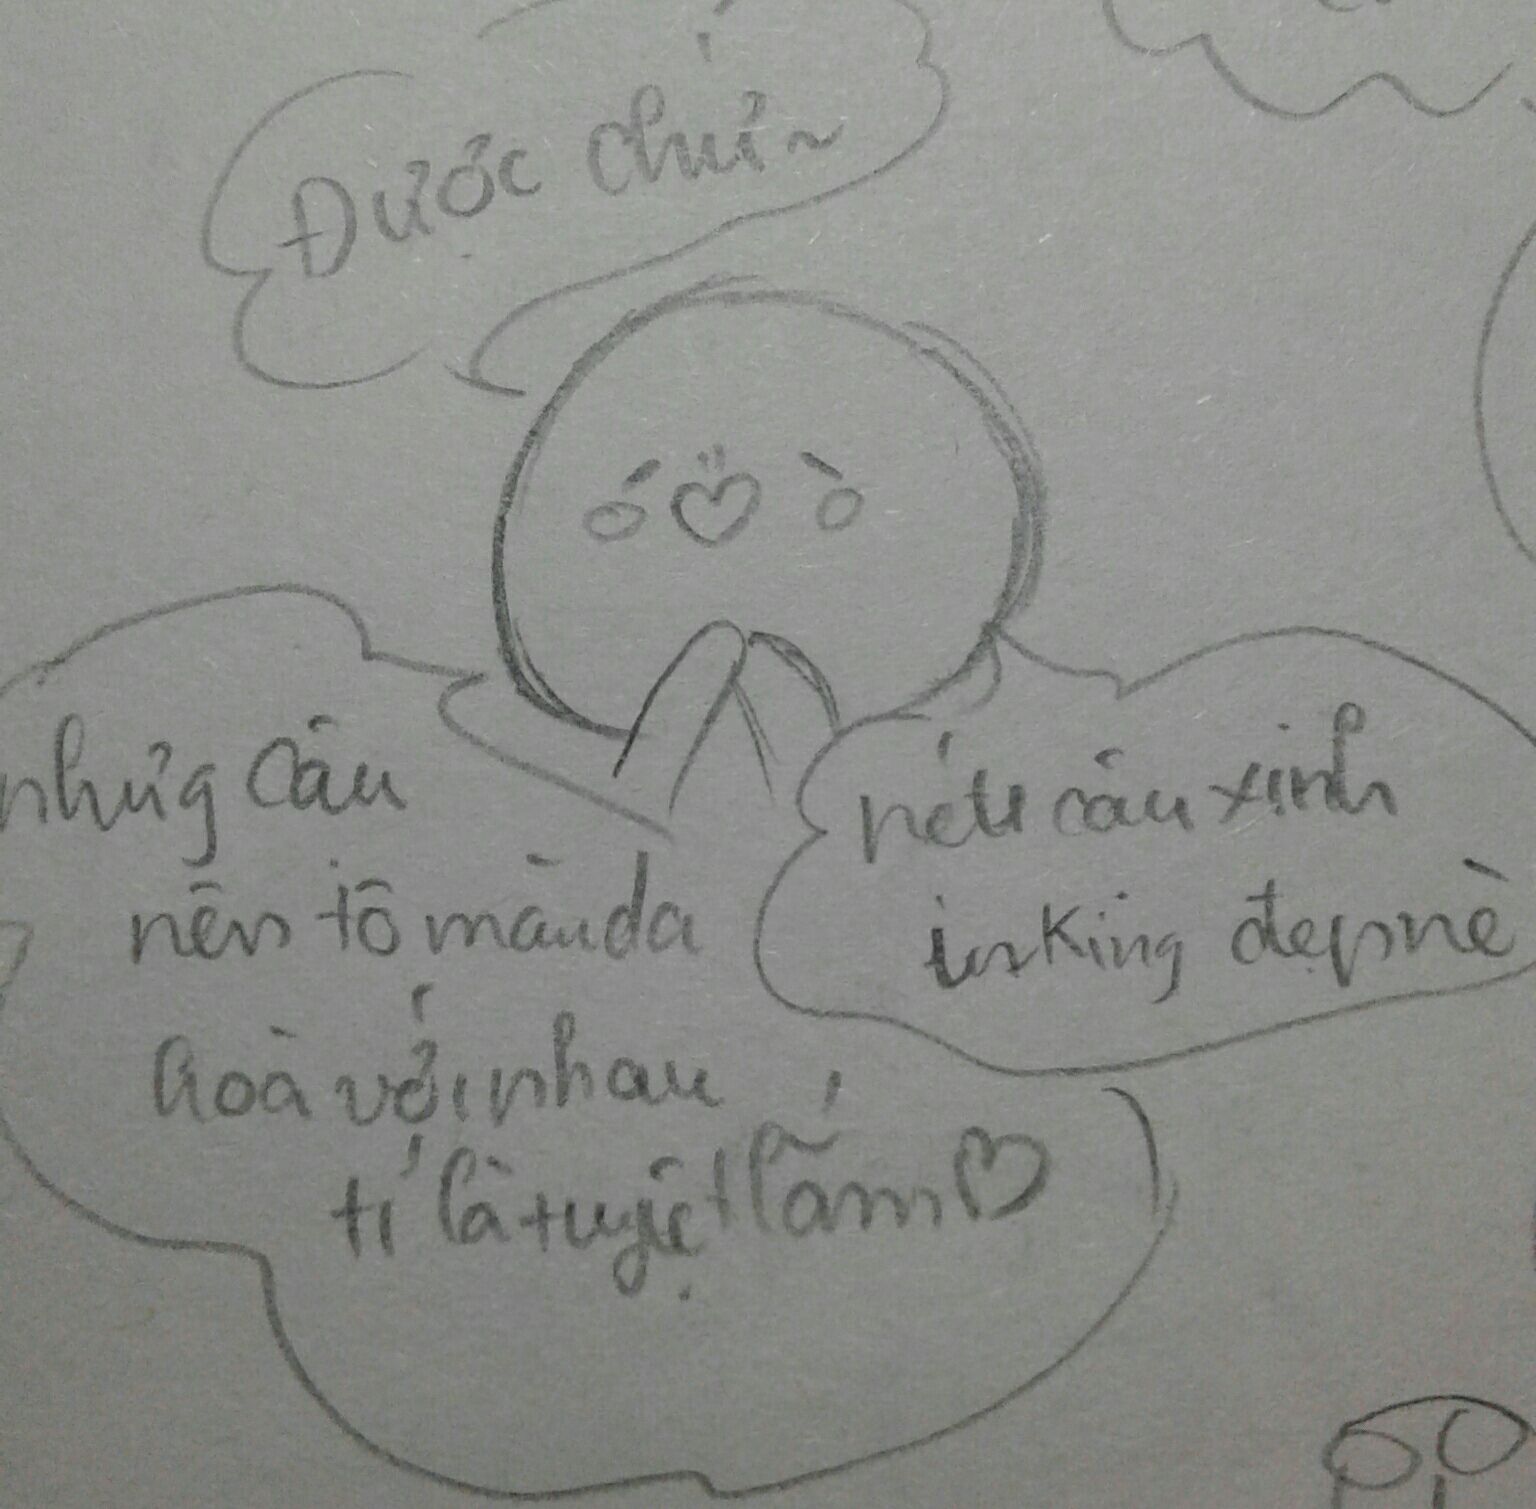 Được chứ~
nét cậu xinh
inking đẹp nè
nhưg cậu
nên tô màu da
hoà với nhau
tí là tuyệt lắm♡